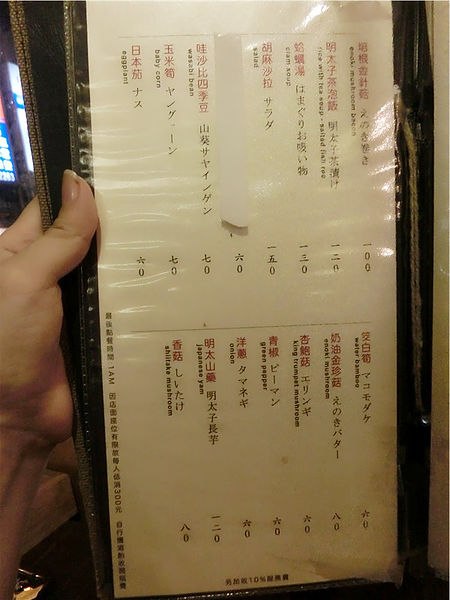 培根金針菇 えのき巻き
enoki mushroom bacon
一00
明太子茶泡飯 明太子茶漬け
rice with tea soup - salted fish roe
一二0
蛤蠣湯 はまぐりお吸い物
clam soup
一三0
胡麻沙拉 サラダ
salad
一五0
六0
哇沙比四季豆 山葵サヤインゲン
wasabi bean
七0
玉米筍 ヤングコーン
baby corn
七0
日本茄 ナス
eggplant
六0
茭白筍 マコモダケ
water bamboo
六0
奶油金珍菇 えのきバター
enoki mushroom
八0
杏鮑菇 エリンギ
king trumpet mushroom
六0
青椒 ピーマン
green pepper
六0
洋蔥 タマネギ
onion
六0
明太山藥 明太子長芋
japanese yam
一二0
香菇 しいたけ
shiitake mushroom
八0
最後點餐時間 1AM 因店面座位有限故每人低消300元 自行攜酒酌收開瓶費
另加收10%服務費